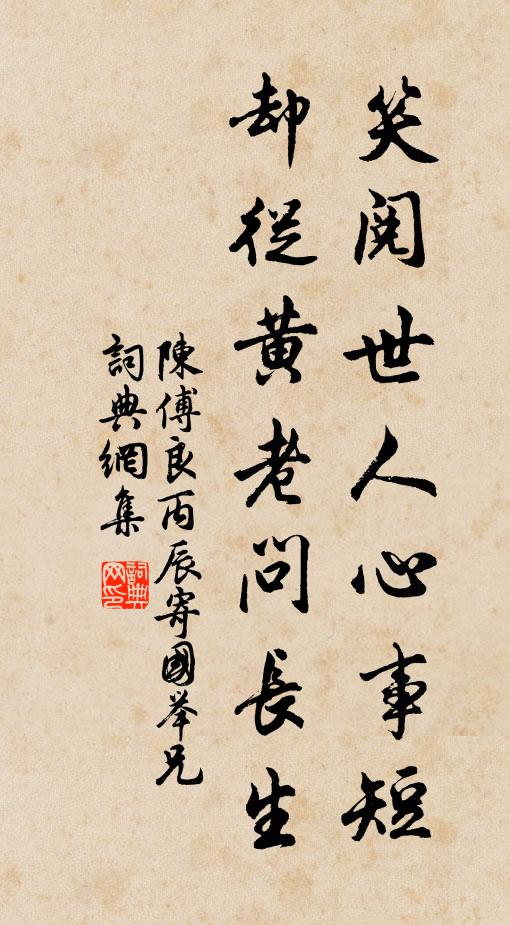 笑閱世人心事短
却從黃老問長生
陳傅良丙辰寄國举兄
詞典網集
詞典
网印